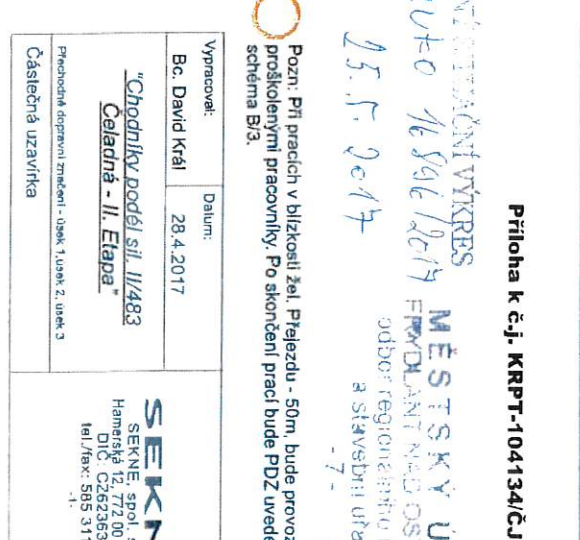 Příloha k č.j. KRPT-104134/ČJ
VÝKRES
16896/2017
25. 5. 2017
MĚSTSKÝ Ú
FRÝDLANT NAD OS
odbor regionálního
a stavební úřa
- 7 -
Pozn: Při pracích v blízkosti žel. Přejezdu - 50m, bude provoz
proškolenými pracovníky. Po skončení prací bude PDZ uvede
schéma B/3.
Vypracoval:
Datum:
Bc. David Král
28.4.2017
"Chodníky podél sil. II/483
Čeladná - II. Etapa"
Přechodné dopravní značení - úsek 1,úsek 2, úsek 3
Částečná uzavírka
SEKN
SEKNE, spol. s
Hamerská 12, 772 00
DIČ: CZ62363
tel./fax: 585 311
-1-